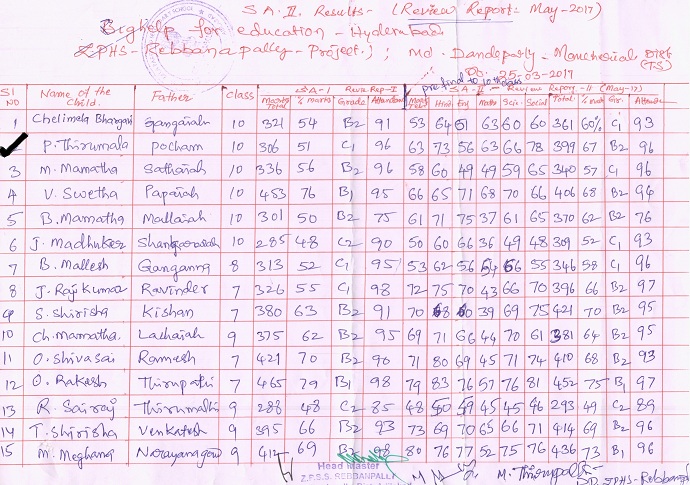 S A. II. Results - (Review Report: May-2017)
Bighelp for education - Hyderabad.
ZPHS-Rebbanapally-Project); Md. Dandepally - Mancherial Dist (TS)
Dt: 25-03-2017
Sl NO Name of the Child. Father Class SA-I Revw Rep-I SA-II - Review Report-II (May-17)
Marks Total % Marks Grade Attendance Mats Tel Hindi Eng Maths Scie. Social Total % Mark Gr. Atten
1 Chelimela Bhargavi Gangaiah 10 321 54 B2 91 53 64 51 63 60 60 361 60% C1 93
2 P. Thirumala Pocham 10 306 51 C1 96 63 73 56 63 66 78 399 67 B2 96
3 M. Mamatha Sathaiah 10 336 56 B2 96 58 60 49 49 59 65 340 57 C1 96
4 V. Swetha Papaiah 10 453 76 B1 95 66 65 71 68 70 66 406 68 B2 94
5 B. Mamatha Mallaiah 10 301 50 B2 75 61 71 75 37 61 65 370 62 B2 76
6 J. Madhuker 10 285 48 C2 90 50 60 66 36 49 48 309 52 C1 93
7 B. Mallesh Ganganna 8 313 52 C1 95 53 62 56 54 66 55 346 58 C1 96
8 J. Raj Kumar Ravinder 7 326 55 C1 98 72 75 70 43 66 70 396 66 B2 97
9 S. Shirisha Kishan 7 380 63 B2 91 70 68 60 39 69 75 421 70 B2 95
10 Ch. Mamatha. Lachaiah 9 375 62 B2 95 69 71 66 44 70 61 381 64 B2 95
11 O. Shivasai Ramesh 7 421 70 B2 90 71 80 69 45 71 74 410 68 B2 93
12 O. Rakesh Thirupathi 7 465 79 B1 98 79 83 76 57 76 81 452 75 B1 97
13 R. Sairaj Thirumalli 9 288 48 C2 85 48 60 49 45 45 46 293 49 C2 89
14 T. Shirisha Venkatesh 9 395 66 B2 93 73 69 70 65 66 71 414 69 B2 96
15 M. Meghana Narayanagoud 9 412 69 B2 98 80 76 77 52 75 76 436 73 B1 96
Head Master
Z.P.S.S. REBBANPALLY
M. Thirupathi
ZPHS-Rebbanapal